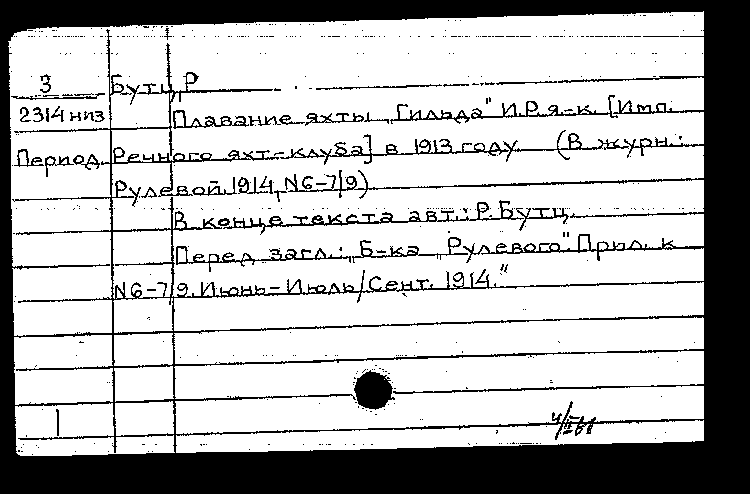 3 Бутц, Р
2314 низ Плавание яхты „Гильда" И.Р.я-к. [Имп.
Период. Речного яхт-клуба] в 1913 году (В журн.:
Рулевой, 1914, N6-7/9)
В конце текста авт.: Р. Бутц.
Перед загл.: „Б-ка „Рулевого". Прил. к
N6-7/9. Июнь-Июль/Сент. 1914."
1